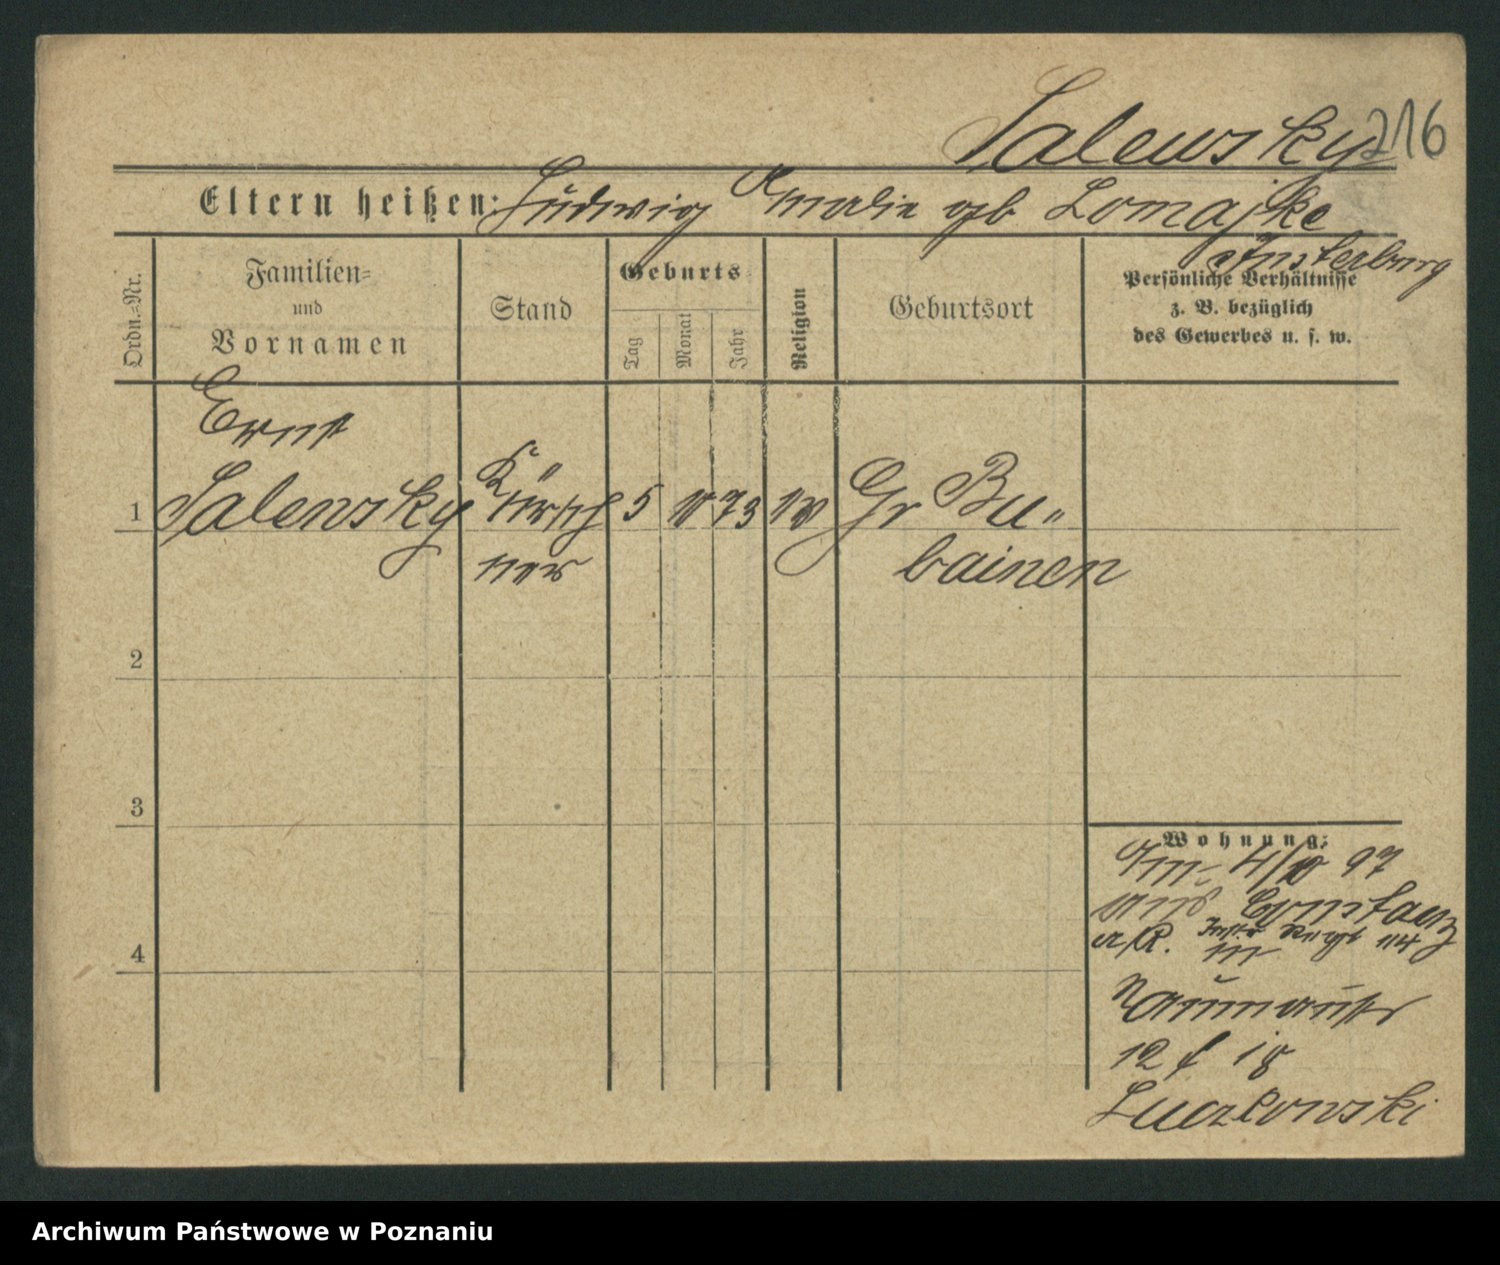 Salewsky 216
Eltern heißen: Ludwig Amalie gb Lomajke
Insterburg
Ordn.=Nr.
Familien=
und
Vornamen
Stand
Geburts
Tag
Monat
Jahr
Religion
Geburtsort
Persönliche Verhältnisse
z. B. bezüglich
des Gewerbes u. s. w.
Ernst
1 Salewsky Kürsch 5 10 73 Gr Bu„
ner bainen
2
3
4
Wohnung:
4/10 97
aus Constanz
a/R. Regt 114
Naumannstr
12
Luczkowski
Archiwum Państwowe w Poznaniu